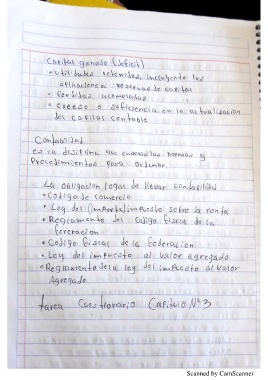 Capital ganado (deficit)
• utilidades retenidas, incluyendo las
aplicaciones reservas de capital
• Perdidas acumuladas
• exceso o suficiencia en la actualización
del capital contable
Contabilidad
es la disiplina que enseña las normas y
Procedimientos para ordenar
La obligacion legal de llevar contabilidad
• Codigo de comercio
• Ley del (importe) impuesto sobre la renta
• Reglamento del Codigo fiscal de la
federacion
• Codigo fiscal de la federacion
• Ley del impuesto al valor agregado
• Reglamento de la ley del impuesto al valor
Agregado
tarea Cuestionario Capitulo Nº 3
Scanned by CamScanner